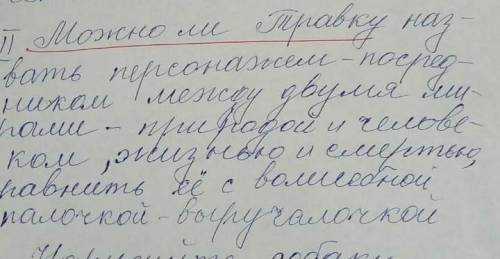 II Можно ли Травку наз-
вать персонажем-посред-
ником между двумя ми-
рами - природой и челове-
ком, жизнью и смертью,
равнить её с волшебной
палочкой-выручалочкой